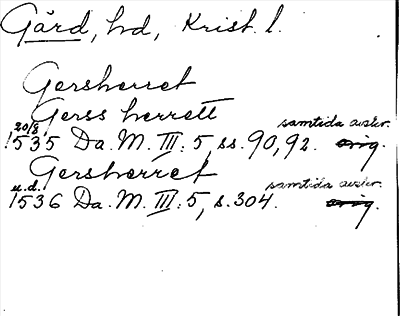 Gärd, hd, Krist. l.
Gersherret
Gerss herrett
20/8 samtida avskr.
1535 Da. M. III: 5, ss. 90, 92. orig.
Gersherret
u.d. samtida avskr.
1536 Da. M. III: 5, s. 304. orig.